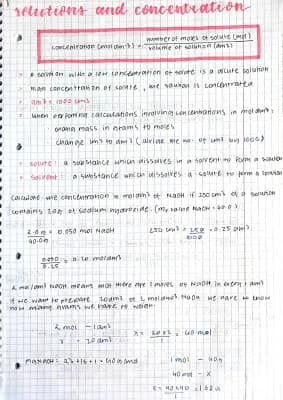 solutions and concentration
concentration (mol dm⁻³) = number of moles of solute (mol)
volume of solution (dm³)
a solution with a low concentration of solute is a dilute solution
high concentration of solute, the solution is concentrated
1 dm³ = 1000 cm³
when performing calculations involving concentrations in mol dm⁻³:
change mass in grams to moles
change cm³ to dm³ (divide the no. of cm³ by 1000)
solute: a substance which dissolves in a solvent to form a solution
solvent: a substance which dissolves a solute to form a solution
calculate the concentration in mol dm⁻³ of NaOH if 250 cm³ of a solution
contains 2.0g of sodium hydroxide. (Mr value NaOH = 40.0)
2.0 = 0.050 mol NaOH 250 cm³ = 250 = 0.25 dm³
40.0 1000
0.050 = 0.20 mol dm⁻³
0.25
2 mol/dm³ NaOH means that there are 2 moles of NaOH in every 1 dm³
if we want to prepare 20 dm³ of 2 mol dm⁻³ NaOH we have to know
how many grams we have to weigh:
2 mol - 1 dm³ x = 20 x 2 = 40 mol
x - 20 dm³ 1
Mr NaOH: 23 + 16 + 1 = 40 g/mol 1 mol - 40g
40 mol - x
x = 40 x 40 =
1